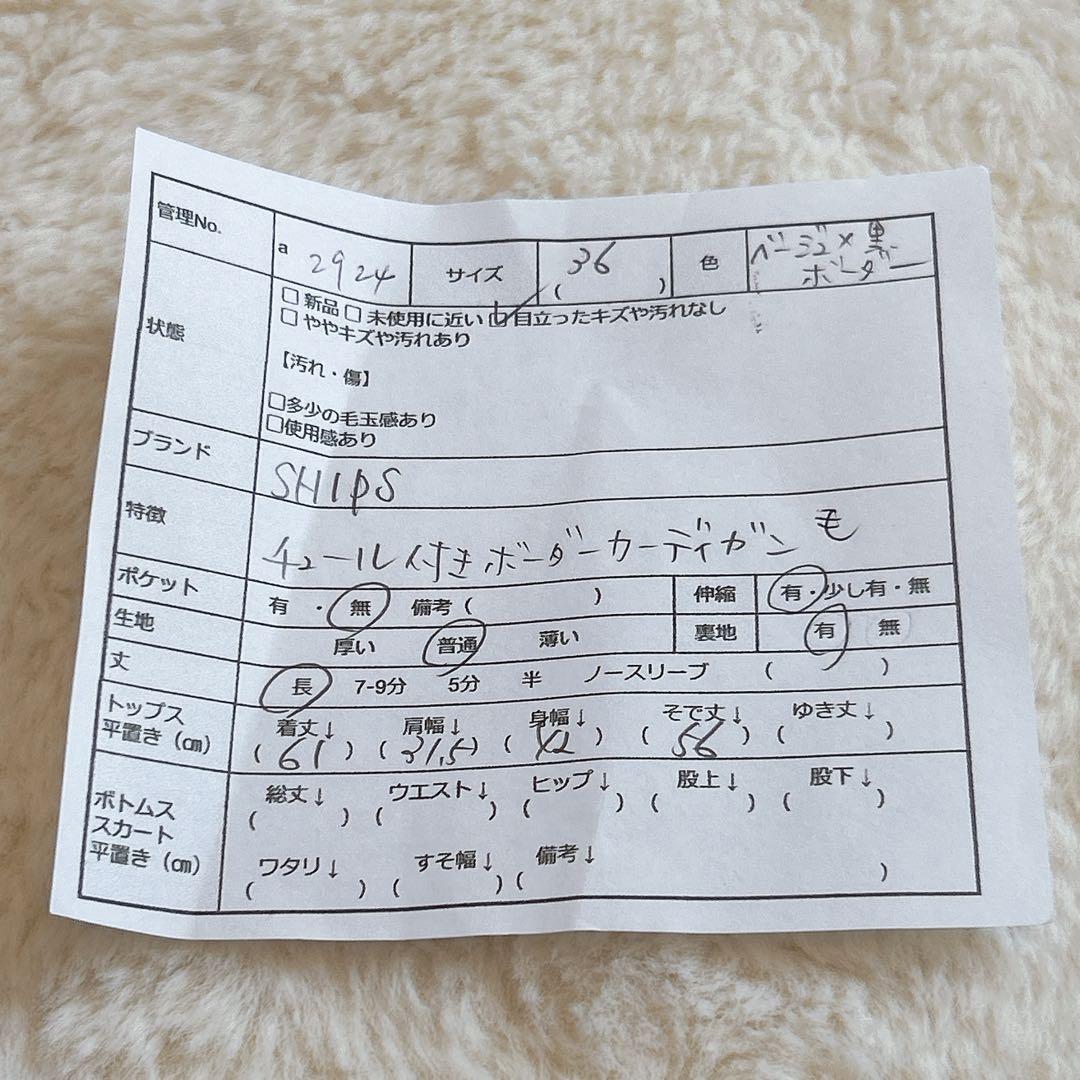 管理No. a 2924 サイズ 36 ( ) 色 ベージュ×黒
ボーダー
状態 □ 新品 □ 未使用に近い ☑ 目立ったキズや汚れなし
□ ややキズや汚れあり
【汚れ・傷】
□多少の毛玉感あり
□使用感あり
ブランド SHIPS
特徴 チュール付きボーダーカーディガン 毛
ポケット 有 ・ 無 備考 ( ) 伸縮 有・少し有・無
生地 厚い 普通 薄い 裏地 有 無
丈 長 7-9分 5分 半 ノースリーブ ( )
トップス 着丈↓ 肩幅↓ 身幅↓ そで丈↓ ゆき丈↓
平置き(㎝) ( 61 ) ( 31.5 ) ( 42 ) ( 56 ) ( )
ボトムス 総丈↓ ウエスト↓ ヒップ↓ 股上↓ 股下↓
スカート ( ) ( ) ( ) ( ) ( )
平置き(㎝) ワタリ↓ すそ幅↓ 備考↓
( ) ( ) ( )